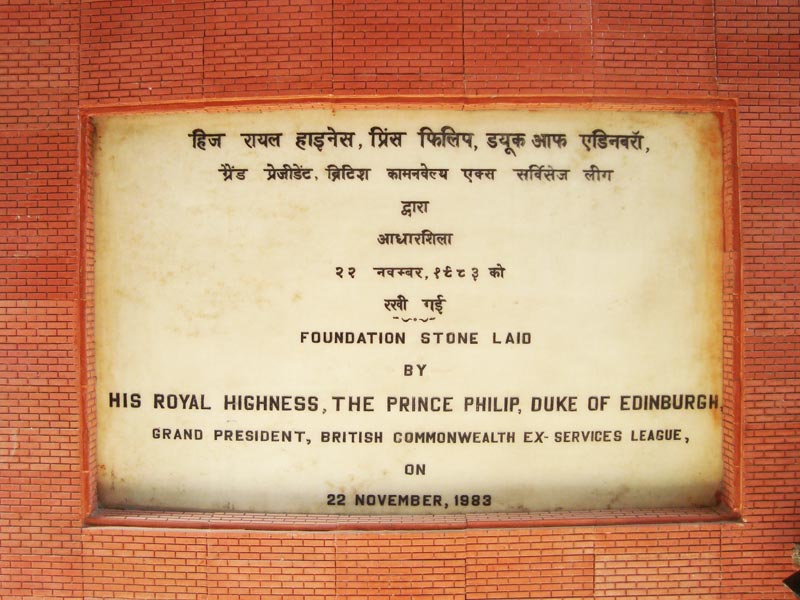 हिज रायल हाइनेस, प्रिंस फिलिप, डयूक आफ एडिनबरॉ,
ग्रैंड प्रेजीडेंट, ब्रिटिश कामनवेल्थ एक्स सर्विसेज लीग
द्वारा
आधारशिला
२२ नवम्बर, १९८३ को
रखी गई
FOUNDATION STONE LAID
BY
HIS ROYAL HIGHNESS, THE PRINCE PHILIP, DUKE OF EDINBURGH,
GRAND PRESIDENT, BRITISH COMMONWEALTH EX-SERVICES LEAGUE,
ON
22 NOVEMBER, 1983